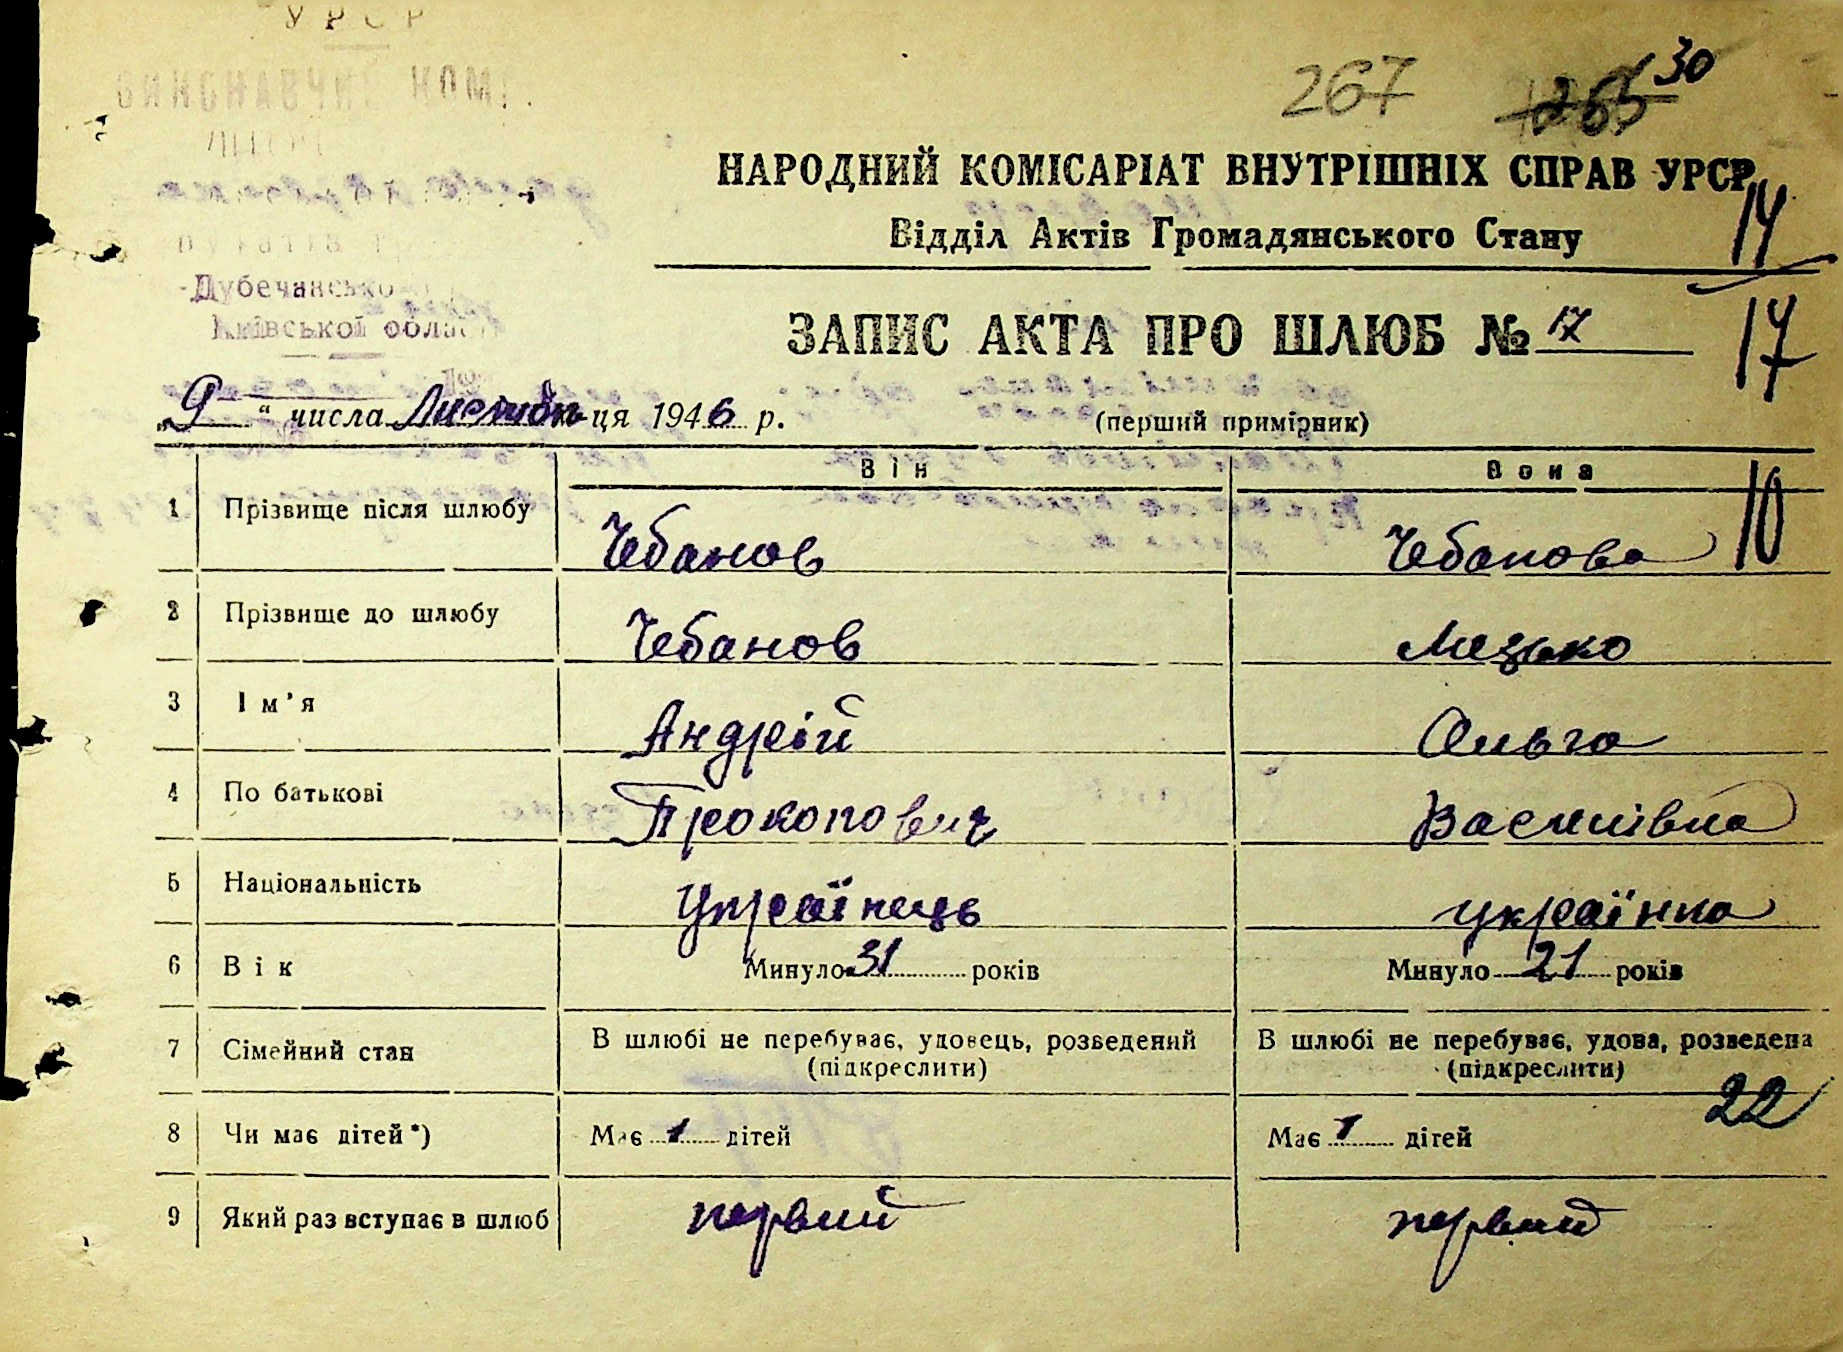 УРСР
267 265 30
НАРОДНИЙ КОМІСАРІАТ ВНУТРІШНІХ СПРАВ УРСР
14
Відділ Актів Громадянського Стану
Дубечансько
Київської обла
ЗАПИС АКТА ПРО ШЛЮБ № 17
17
„9“ числа Листопа-ця 1946 р. (перший примірник)
Він Вона
10
1 Прізвище після шлюбу Чебанов Чебанова
2 Прізвище до шлюбу Чебанов Мезько
3 Ім’я Андрій Ольга
4 По батькові Прокопович Василівна
5 Національність Українець українка
6 Вік Минуло 31 років Минуло 21 років
7 Сімейний стан В шлюбі не перебуває, удовець, розведений В шлюбі не перебуває, удова, розведена
(підкреслити) (підкреслити)
22
8 Чи має дітей*) Має 1 дітей Має 1 дітей
9 Який раз вступає в шлюб первий первий